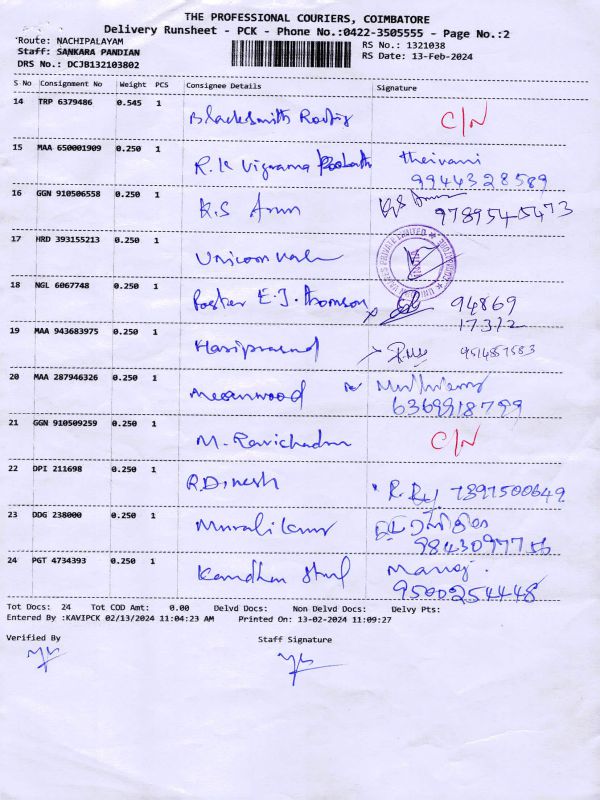 THE PROFESSIONAL COURIERS, COIMBATORE
Delivery Runsheet - PCK - Phone No.:0422-3505555 - Page No.:2
Route: NACHIPALAYAM RS No.: 1321038
Staff: SANKARA PANDIAN RS Date: 13-Feb-2024
DRS No.: DCJB132103802
S No Consignment No Weight PCS Consignee Details Signature
14 TRP 6379486 0.545 1 C/N
15 MAA 650001909 0.250 1 R.K theivani
9944328589
16 GGN 910506558 0.250 1 K.S Arun KS Arun
9789545473
17 HRD 393155213 0.250 1
PRIVATE LIMITED
18 NGL 6067748 0.250 1 E.J. Thomson 94869
17312
19 MAA 943683975 0.250 1 Hariprasad
20 MAA 287946326 0.250 1
6369918799
21 GGN 910509259 0.250 1 M. Ravichadran C/N
22 DPI 211698 0.250 1 R.Dinesh 7397500649
23 DDG 238000 0.250 1 Muralikumar
24 PGT 4734393 0.250 1 Manoj.
9500254448
Tot Docs: 24 Tot COD Amt: 0.00 Delvd Docs: Non Delvd Docs: Delvy Pts:
Entered By :KAVIPCK 02/13/2024 11:04:23 AM Printed On: 13-02-2024 11:09:27
Verified By Staff Signature